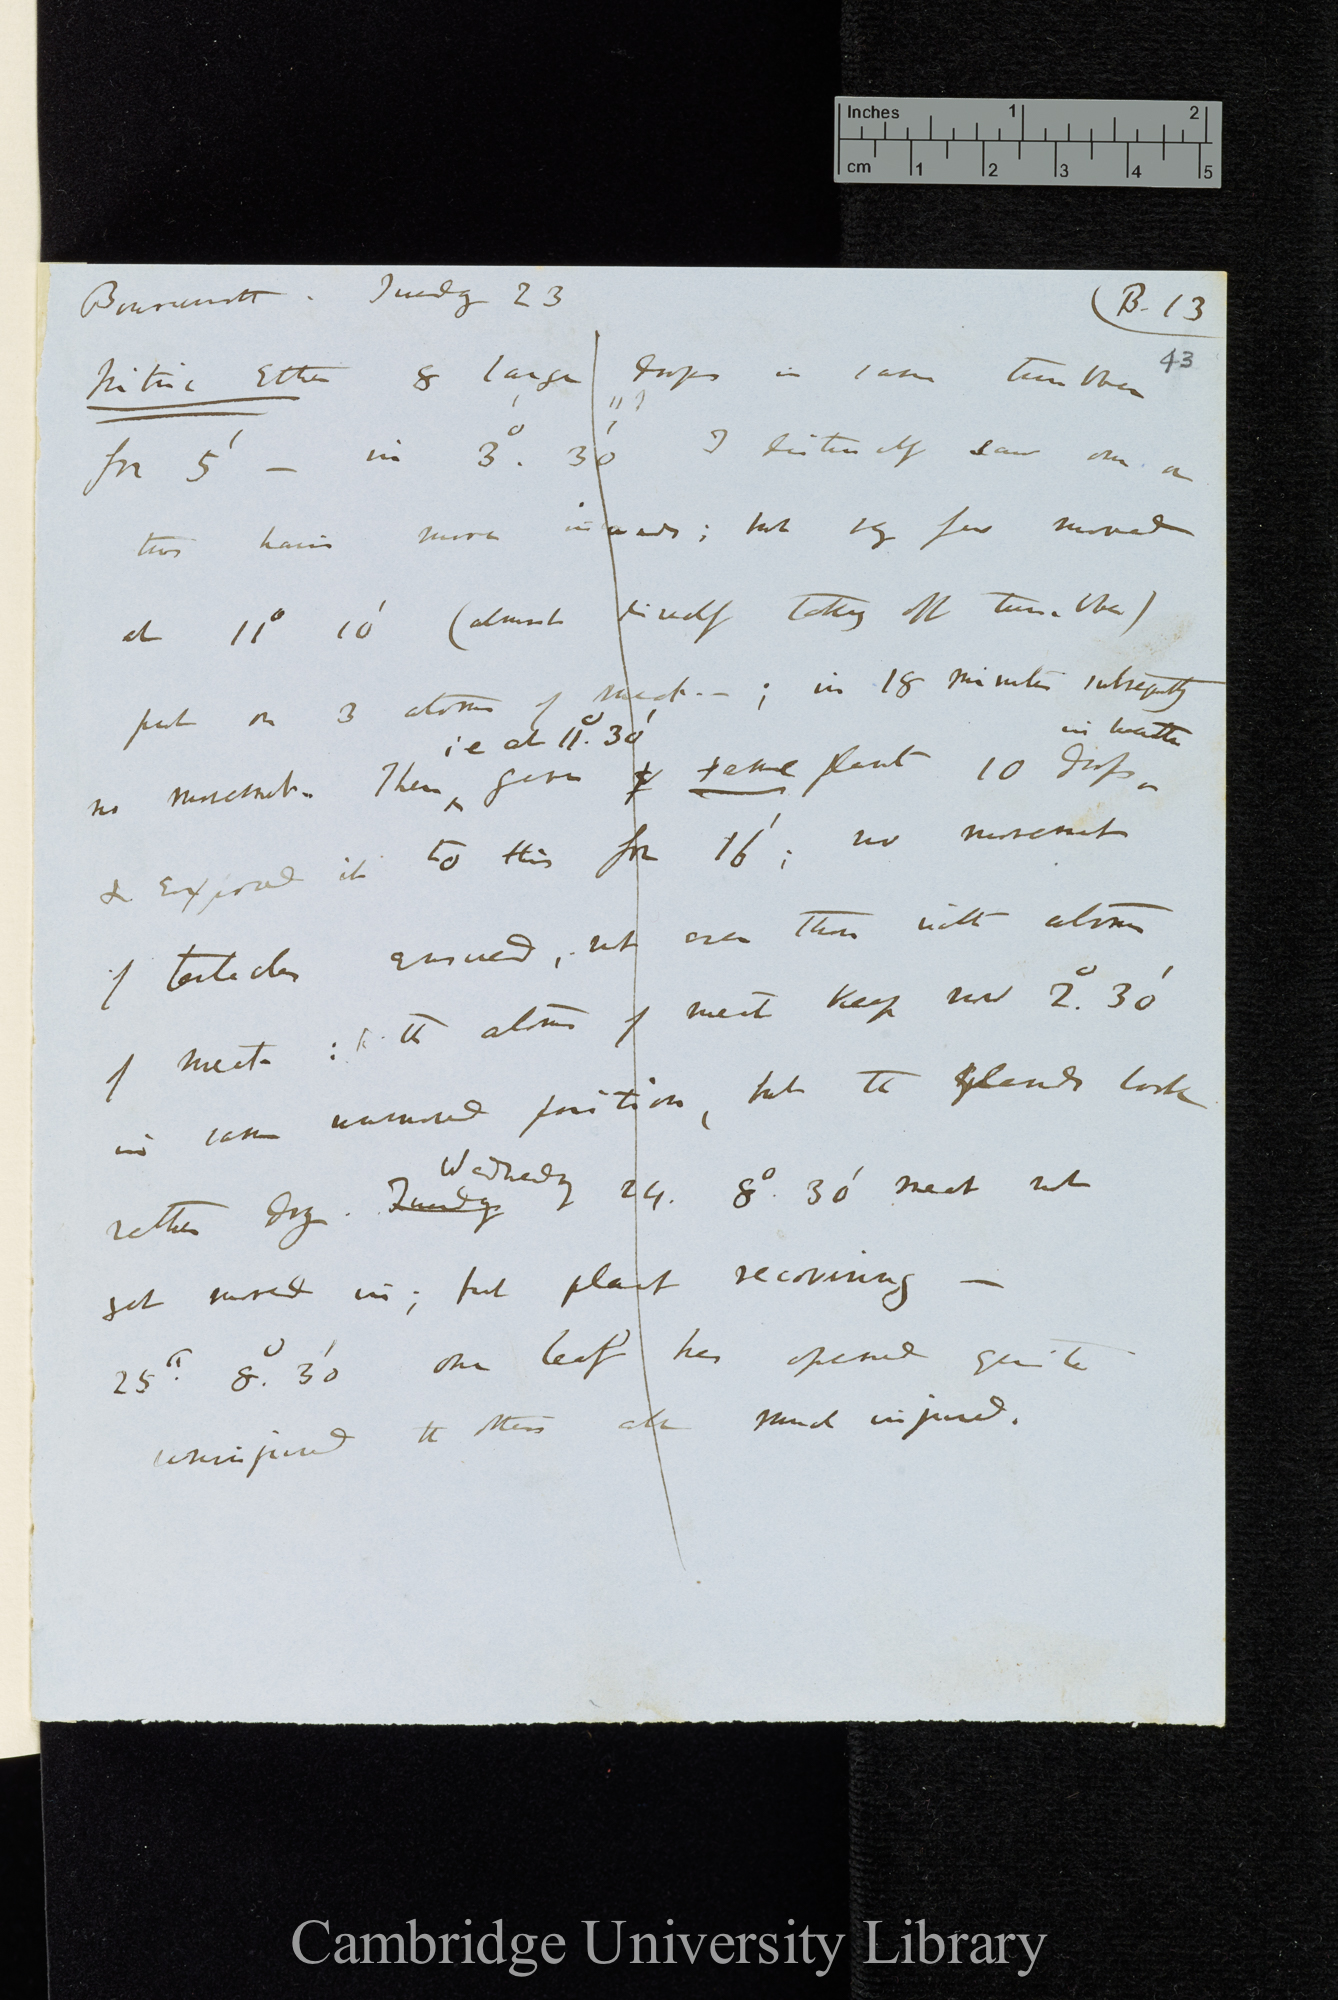 Inches 1 2
cm 1 2 3 4 5
Bournemouth. Tuesday 23
B. 13
43
Nitric Ether 8 large drops in same tumbler
for 5' — in 3°. 30' I distinctly saw one or
two hairs move inwards; but very few moved
at 11° 10' (almost directly taking off tumbler)
put on 3 atoms of meat — ; in 18 minutes subsequently
i.e at 11°. 30'
in water
no movement. Then gave same plant 10 drops
& exposed it to this for 16'; no movement
of tentacles ensued, not even those with atoms
of meat: the atoms of meat keep now 2°. 30'
in same unmoved position, but the glands look
Wednesday
rather dry. Tuesday 24. 8°. 30' meat not
got moved in; but plant recovering —
25th. 8°. 30' one leaf has opened quite
uninjured the others all much injured.
Cambridge University Library